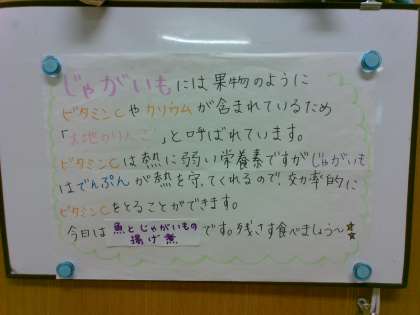 じゃがいもには果物のように
ビタミンCやカリウムが含まれているため
「大地のりんご」と呼ばれています。
ビタミンCは熱に弱い栄養素ですがじゃがいも
はでんぷんが熱を守ってくれるので、効率的に
ビタミンCをとることができます。
今日は魚とじゃがいもの揚げ煮です。残さず食べましょう～